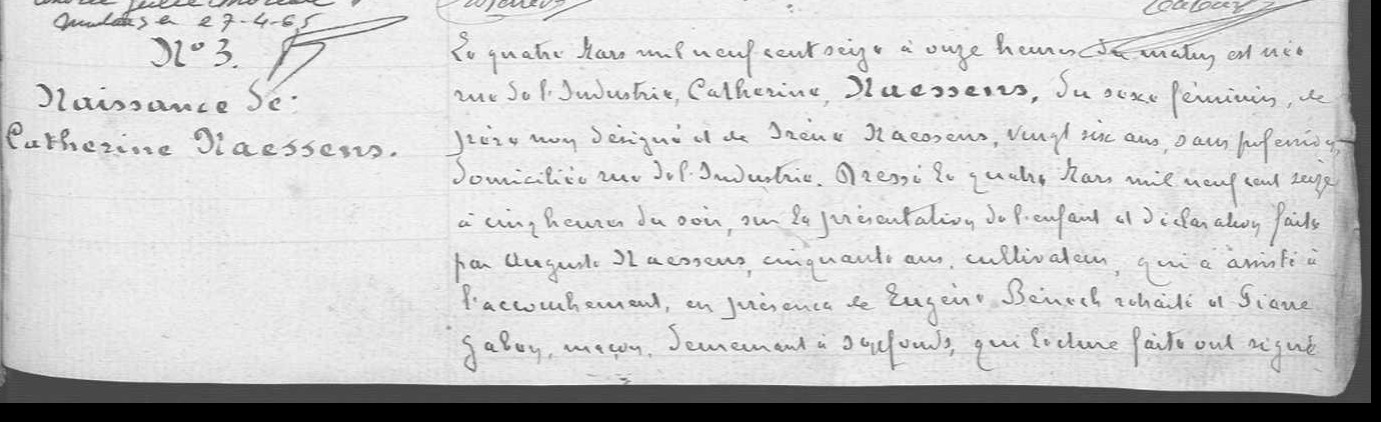 27-4-65
N° 3.
Naissance de:
Catherine Naessens.
Le quatre Mars mil neuf cent seize à onze heures du matin est née
rue de l'Industrie, Catherine, Naessens, du sexe féminin, de
père non désigné et de Irène Naessens, vingt six ans, sans profession,
domiciliée rue de l'Industrie. Dressé le quatre Mars mil neuf cent seize
à cinq heures du soir, sur la présentation de l'enfant et déclaration faite
par Auguste Naessens, cinquante ans, cultivateur, qui a assisté à
l'accouchement, en présence de Eugène retraité et
maçon, demeurant à qui lecture faite ont signé